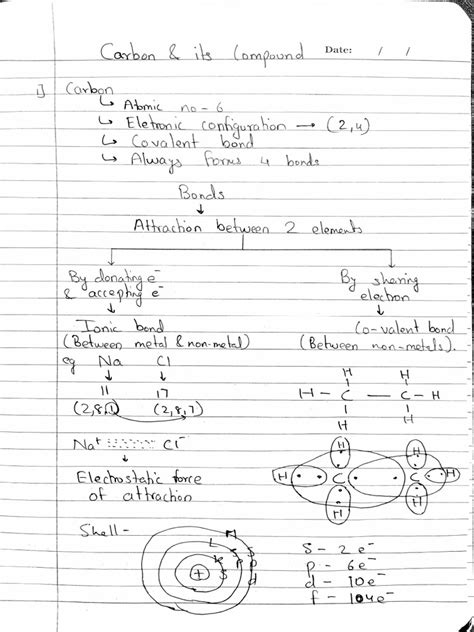 Carbon & its Compound Date: / /
1] Carbon
↳ Atomic no - 6
↳ Eletronic configuration → (2,4)
↳ Covalent bond
↳ Always forms 4 bonds
Bonds
↓
Attraction between 2 elements
By donating e⁻ By sharing
& accepting e⁻ electron
↓ ↓
Ionic bond Co-valent bond
(Between metal & non-metal) (Between non-metals).
eg Na Cl H H
↓ ↓
11 17 H - C - C - H
(2,8,1) (2,8,7) H H
Na⁺ Cl⁻ H H
↓
Electrostatic force H C C H
of attraction H H
Shell - M
L S
K S P S - 2 e⁻
+ S P d P - 6e⁻
d - 10e⁻
f - 104e⁻